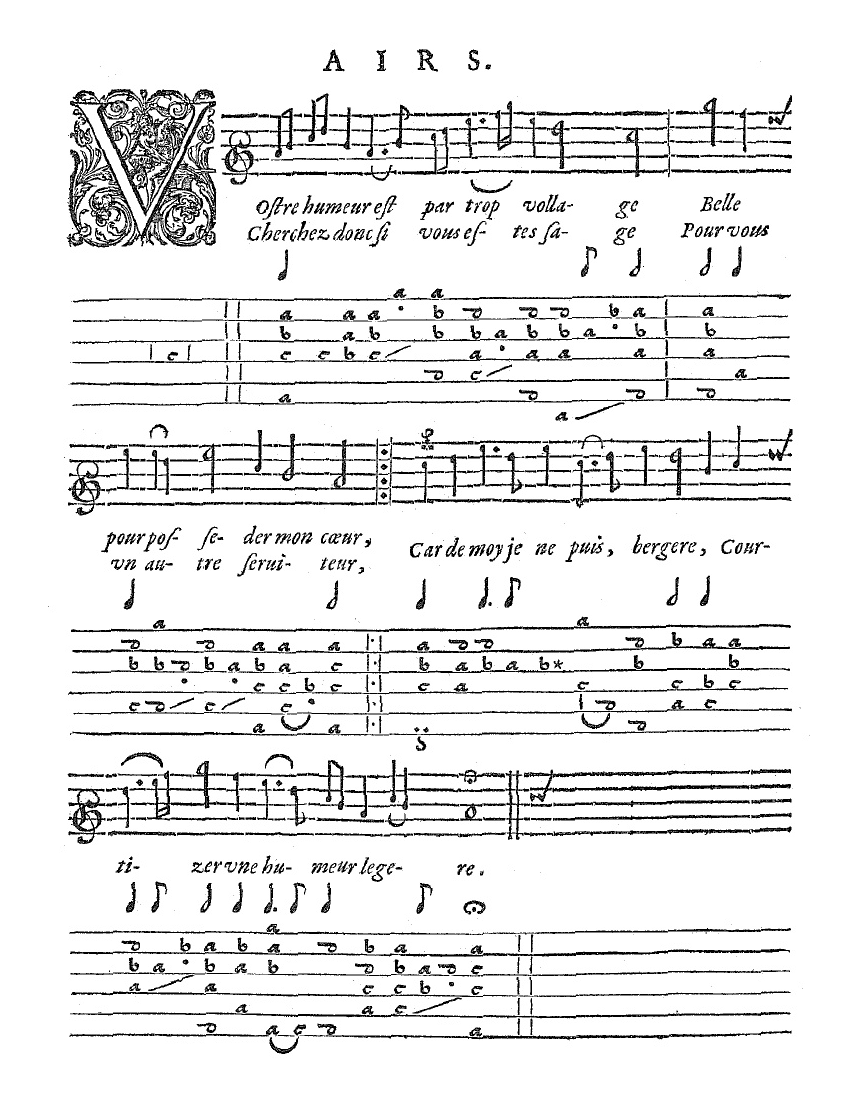 AIRS.
VOſtre humeur eſt par trop volla- ge Belle
Cherchez donc ſi vous eſ- tes ſa- ge Pour vous
pour poſ- ſe- der mon cœur,
vn au- tre ſerui- teur,
Car de moy je ne puis, bergere, Cour-
ti- zer vne hu- meur lege- re.